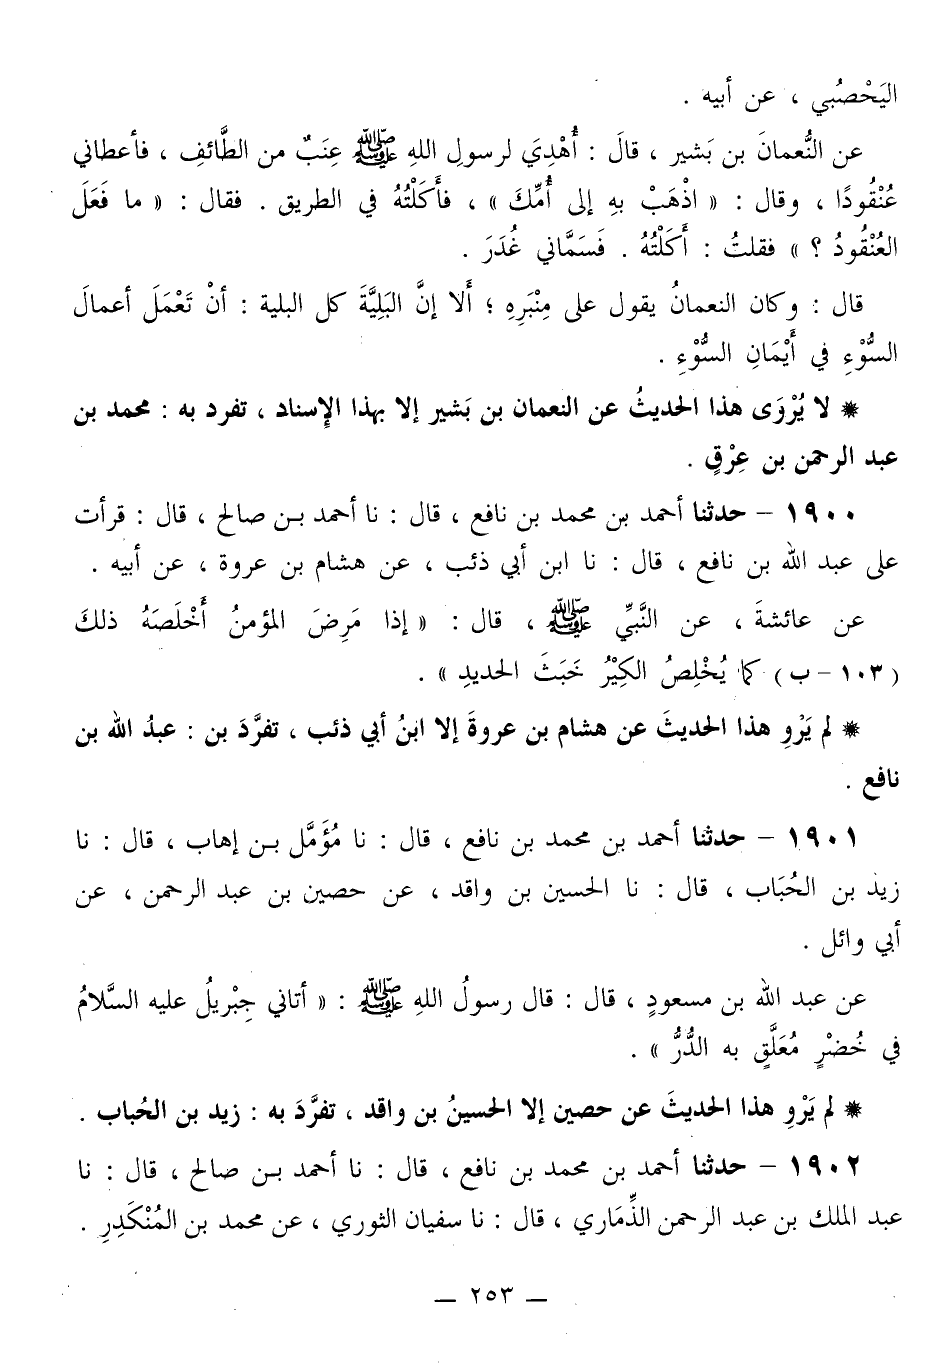 اليَحْصُبي ، عن أبيه .
عن النُّعمانَ بن بَشير ، قالَ : أُهْدِيَ لرسولِ اللهِ ﷺ عِنَبٌ من الطَّائفِ ، فأعطاني
عُنْقُودًا ، وقال : « اذْهَبْ بهِ إلى أُمِّكَ » ، فأَكَلْتُهُ في الطريق . فقال : « ما فَعَلَ
العُنْقُودُ ؟ » فقلتُ : أَكَلْتُهُ . فَسَمَّاني غُدَرَ .
قال : وكان النعمانُ يقول على مِنْبَرِهِ ؛ أَلا إنَّ البَلِيَّةَ كل البلية : أنْ تَعْمَلَ أعمالَ
السُّوْءِ في أَيْمَانِ السُّوْءِ .
* لا يُرْوَى هذا الحديثُ عن النعمان بن بَشير إلا بهذا الإسناد ، تفرد به : محمد بن
عبد الرحمن بن عِرْقٍ .
١٩٠٠ - حدثنا أحمد بن محمد بن نافع ، قال : نا أحمد بن صالح ، قال : قرأت
على عبد الله بن نافع ، قال : نا ابن أبي ذئب ، عن هشام بن عروة ، عن أبيه .
عن عائشةَ ، عن النَّبيِّ ﷺ ، قال : « إذا مَرِضَ المؤمنُ أَخْلَصَهُ ذلكَ
( ١٠٣ - ب ) كما يُخْلِصُ الكِيْرُ خَبَثَ الحديدِ » .
* لم يَرْوِ هذا الحديثَ عن هشام بن عروةَ إلا ابنُ أبي ذئب ، تفرَّدَ بن : عبدُ الله بن
نافع .
١٩٠١ - حدثنا أحمد بن محمد بن نافع ، قال : نا مُؤَمَّل بن إهاب ، قال : نا
زيد بن الحُبَاب ، قال : نا الحسين بن واقد ، عن حصين بن عبد الرحمن ، عن
أبي وائل .
عن عبد الله بن مسعودٍ ، قال : قال رسولُ اللهِ ﷺ : « أتاني جِبْريلُ عليه السَّلامُ
في خُضْرٍ مُعَلَّقٍ به الدُّرُّ » .
* لم يَرْوِ هذا الحديثَ عن حصين إلا الحسينُ بن واقد ، تفرَّدَ به : زيد بن الحُباب .
١٩٠٢ - حدثنا أحمد بن محمد بن نافع ، قال : نا أحمد بن صالح ، قال : نا
عبد الملك بن عبد الرحمن الذِّمَاري ، قال : نا سفيان الثوري ، عن محمد بن المُنْكَدِرِ .
— ٢٥٣ —